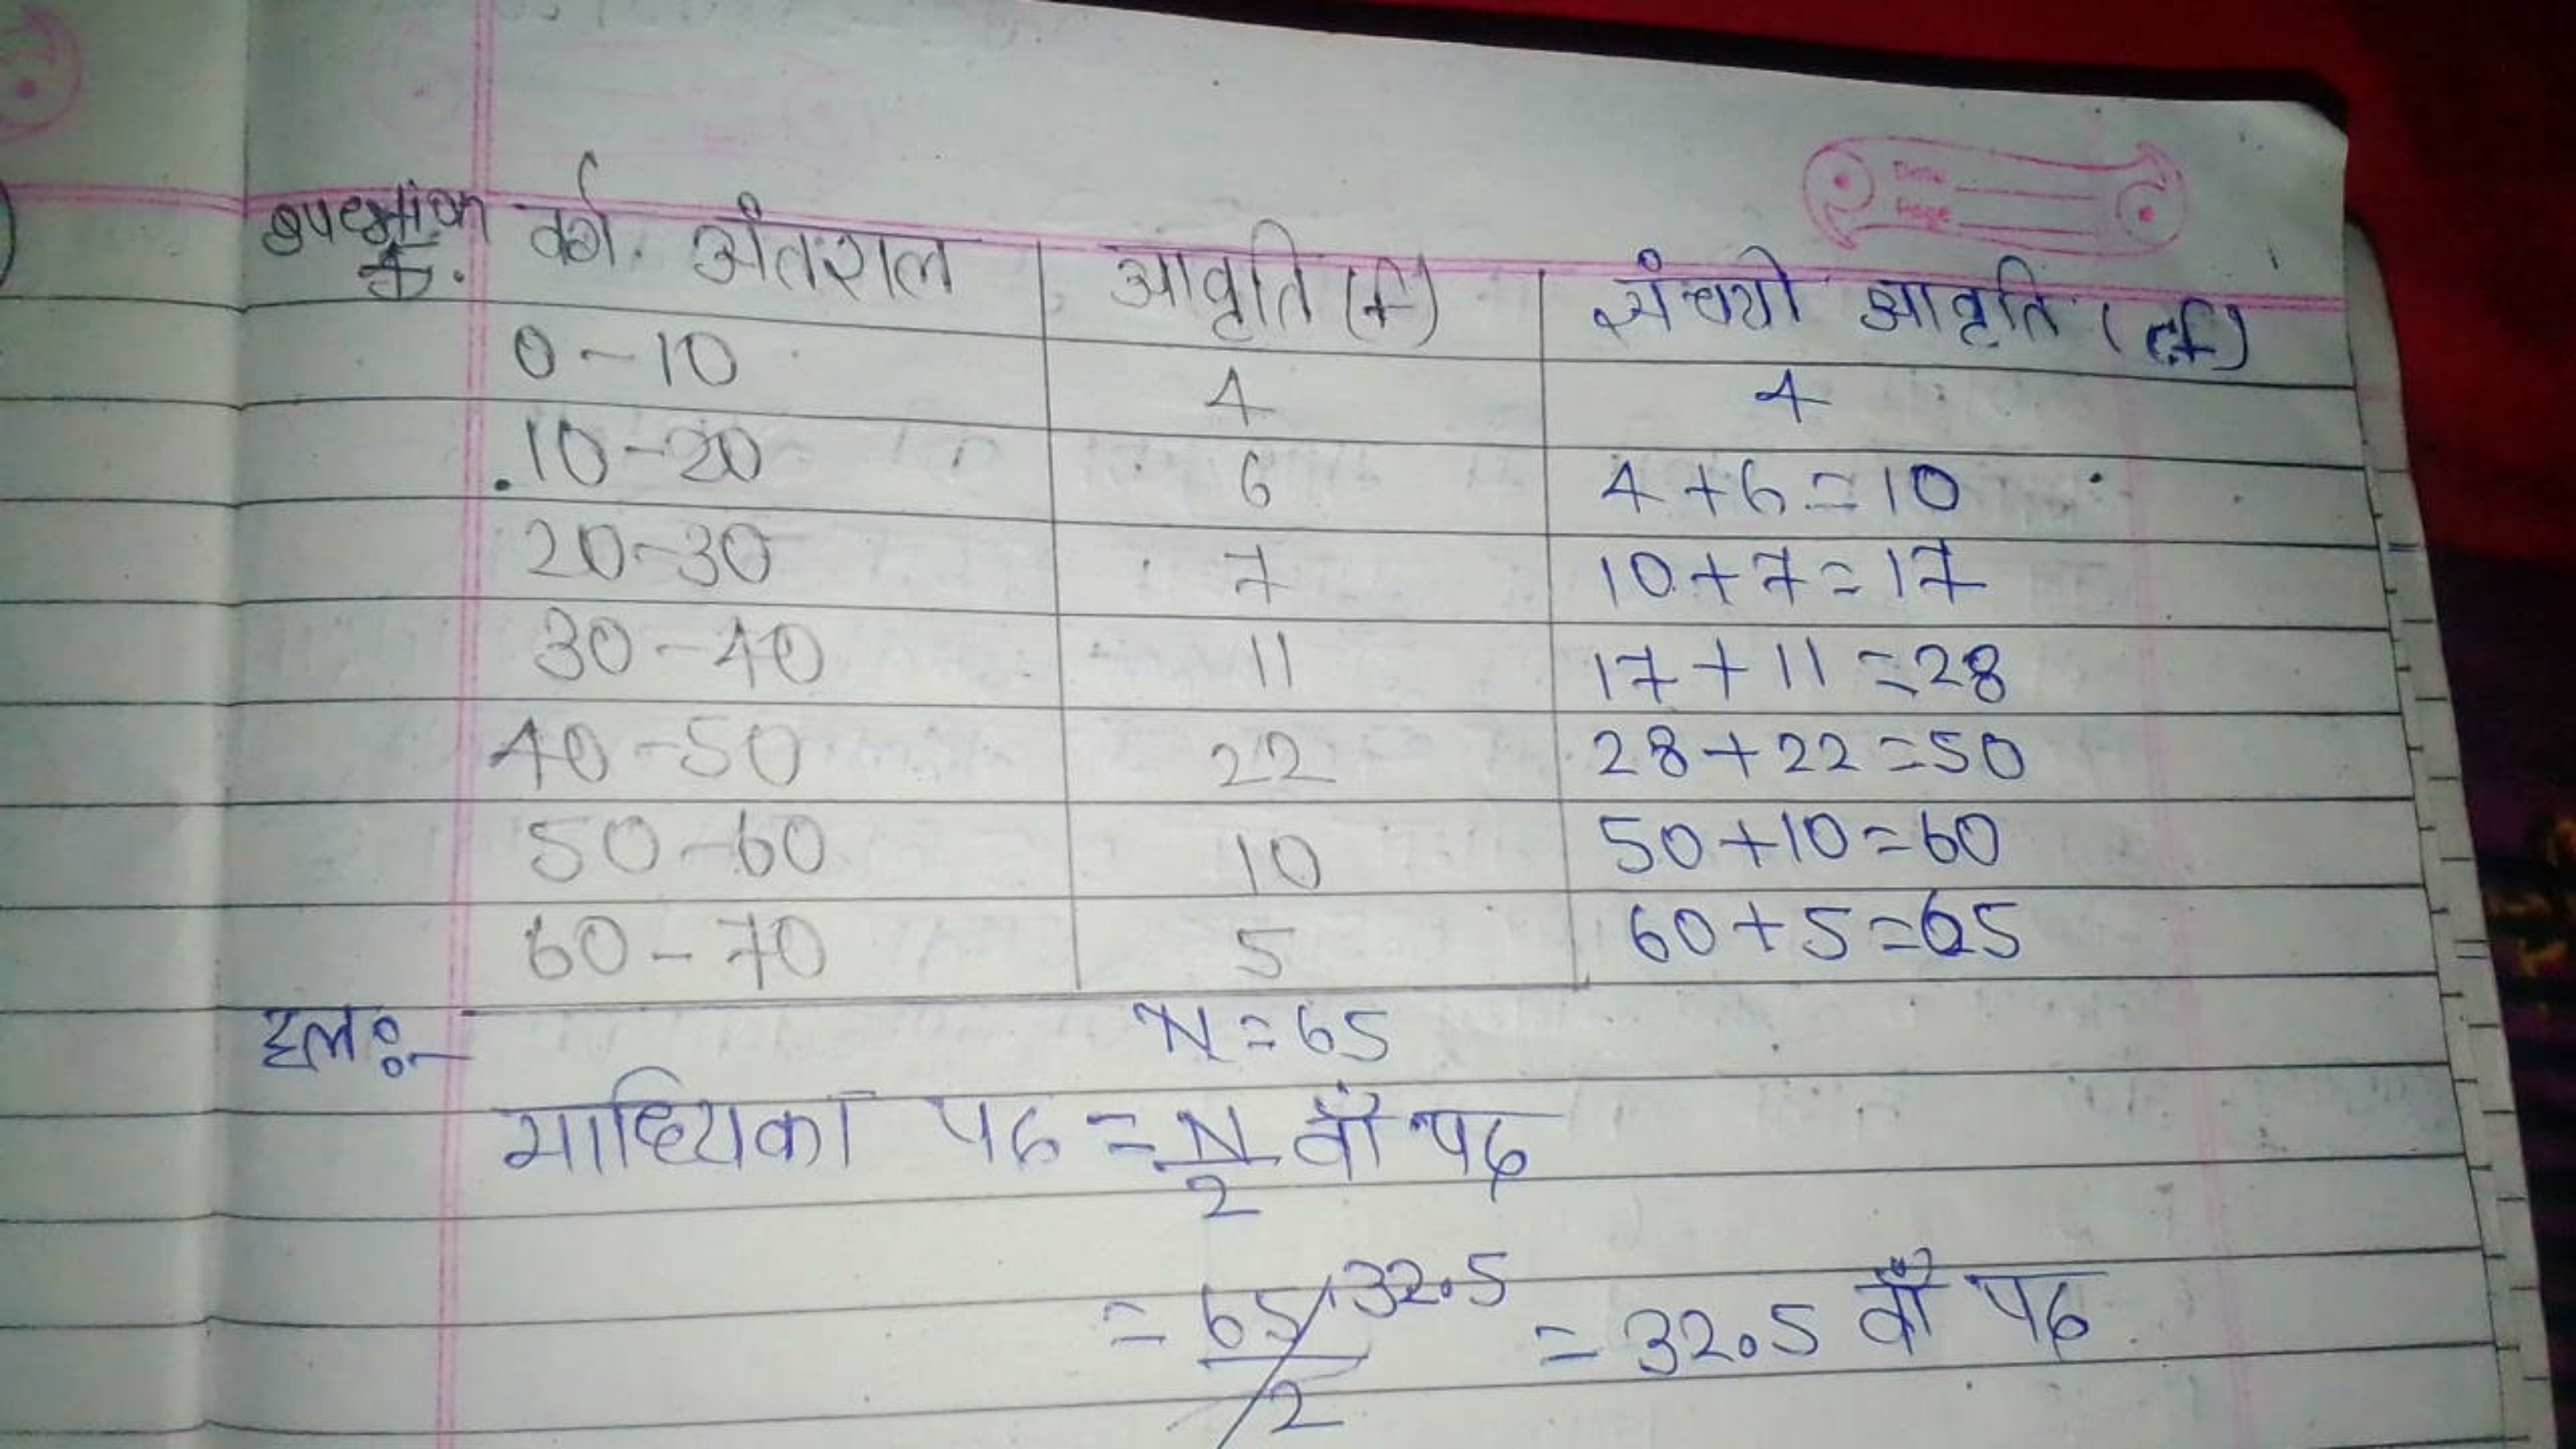 वर्ग. अंतराल आवृति (f) संचयी आवृति (cf)
क.
0-10 4 4
10-20 6 4+6=10
20-30 7 10+7=17
30-40 11 17+11=28
40-50 22 28+22=50
50-60 10 50+10=60
60-70 5 60+5=65
हलः- N=65
माध्यिका पद = N/2 वाँ पद
= 65/2 32.5 = 32.5 वाँ पद
Date
Page